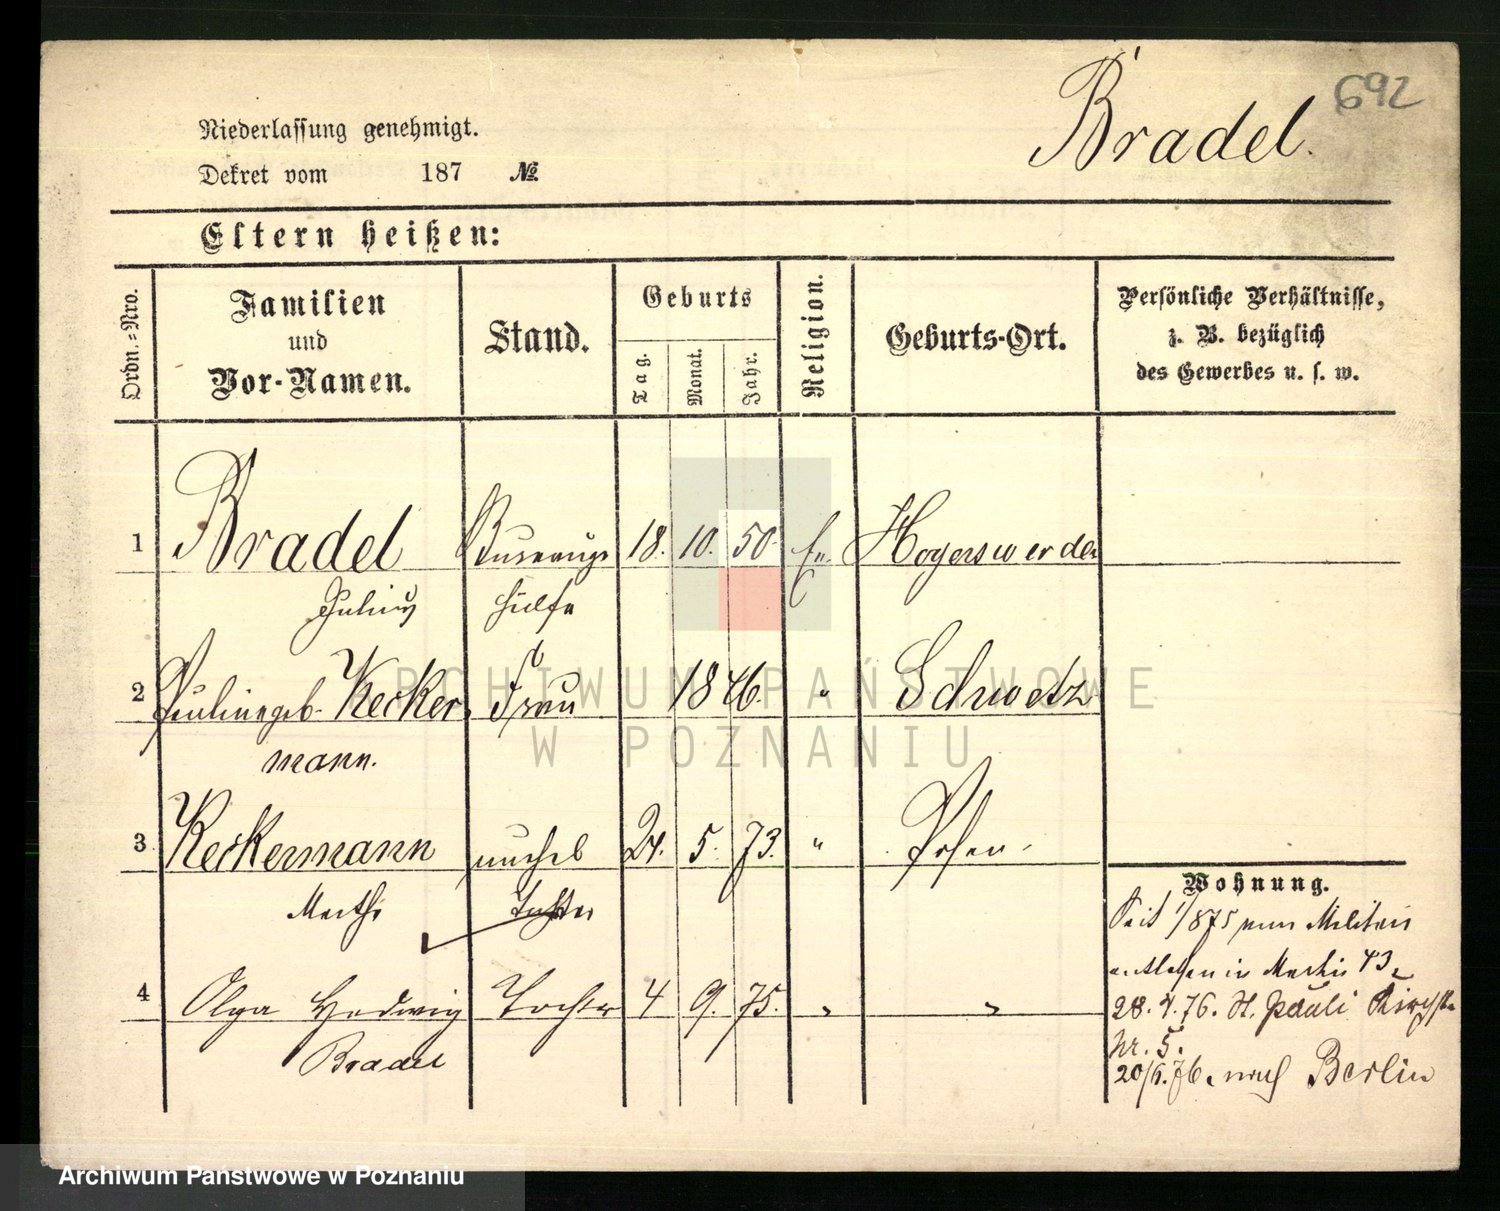 692
Bradel.
Niederlassung genehmigt.
Dekret vom 187 №
Eltern heißen:
Ordn.-Nro.
Familien und Vor-Namen.
Stand.
Geburts
Tag. Monat. Jahr.
Religion.
Geburts-Ort.
Persönliche Verhältnisse,
z. B. bezüglich
des Gewerbes u. s. w.
1 Bradel 18. 10. 50. Ev. Hoyerswerda
Julius hülfe
2 Pauline geb. Kecker Frau 1846. " Schwetz
mann.
3 Keckermann unehel 24. 5. 73. " Posen
Martha Tochter
4 Olga Hedwig Tochter 4 9. 75. " "
Bradel
Wohnung.
Seit 1/875 vom Militair
entlassen in Martin 43,
28.4.76. St. Pauli Kirchstr
Nr. 5.
20/6.76. nach Berlin
ARCHIWUM PAŃSTWOWE
W POZNANIU
Archiwum Państwowe w Poznaniu